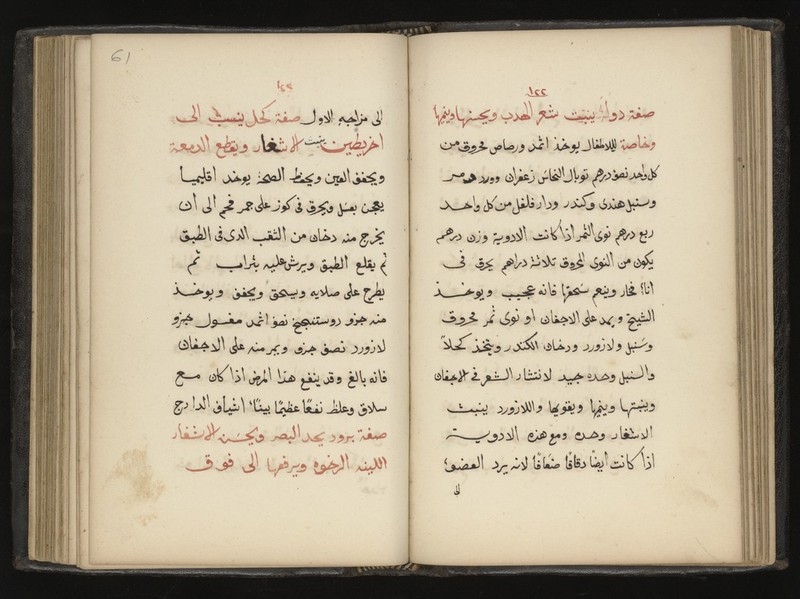 ١٢٢
صفة دواء ينبت شعر الهدب ويحسنها وينميها
وخاصة للاطفال يوخذ اثمد ورصاص محروق من
كل واحد نصف درهم توبال النحاس زعفران وورد مر
وسنبل هندى وكندر ودار فلفل من كل واحد
ربع درهم نوى التمر اذا كانت الادوية وزن درهم
يكون من النوى المحروق ثلاثة دراهم يحرق فى
اناء فخار وينعم سحقها فانه عجيب ويوخذ
الشيح ويمد على الاجفان او نوى تمر محروق
وسنبل ولازورد ودخان الكندر ويتخذ كحلاً
والسنبل وحده جيد لانتشار الشعر فى الاجفان
وينبتها وينميها ويقويها واللازورد ينبت
الاشفار وحده ومع هذه الادوية
اذا كانت ايضا دقاقا ضعافا لانه يرد العضو
الى
61
الى مزاجه الاول صفة كحل ينسب الى
اخريطين ينبت الاشفار ويقطع الدمعة
ويجفف العين ويحفظ الصحة يوخذ اقليميا
يعجن بعسل ويحرق فى كوز على جمر فحم الى ان
يخرج منه دخان من الثقب الذى فى الطبق
ثم يقلع الطبق ويرش عليه بتراب ثم
يطرح على صلايه ويسحق ويجفف ويوخذ
منه جزو روسختج نصف اثمد مغسول جزو
لازورد نصف جزو ويمر منه على الاجفان
فانه بالغ وقد ينفع هذا المرض اذا كان مع
سلاق وغلظ نفعًا عظيمًا بينًا اشياف الدارج
صفة برود يحد البصر ويحسن الاشفار
اللينه الرخوه ويرفعها الى فوق